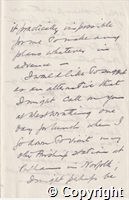 it practically impossible
for me to make any
plans whatever in
advance —
I would like to suggest
as an alternative that
I might call on you
at
one
day for lunch when I
go down to visit
our Breeding station at
in Norfolk;
I might perhaps be
wellcome
collection